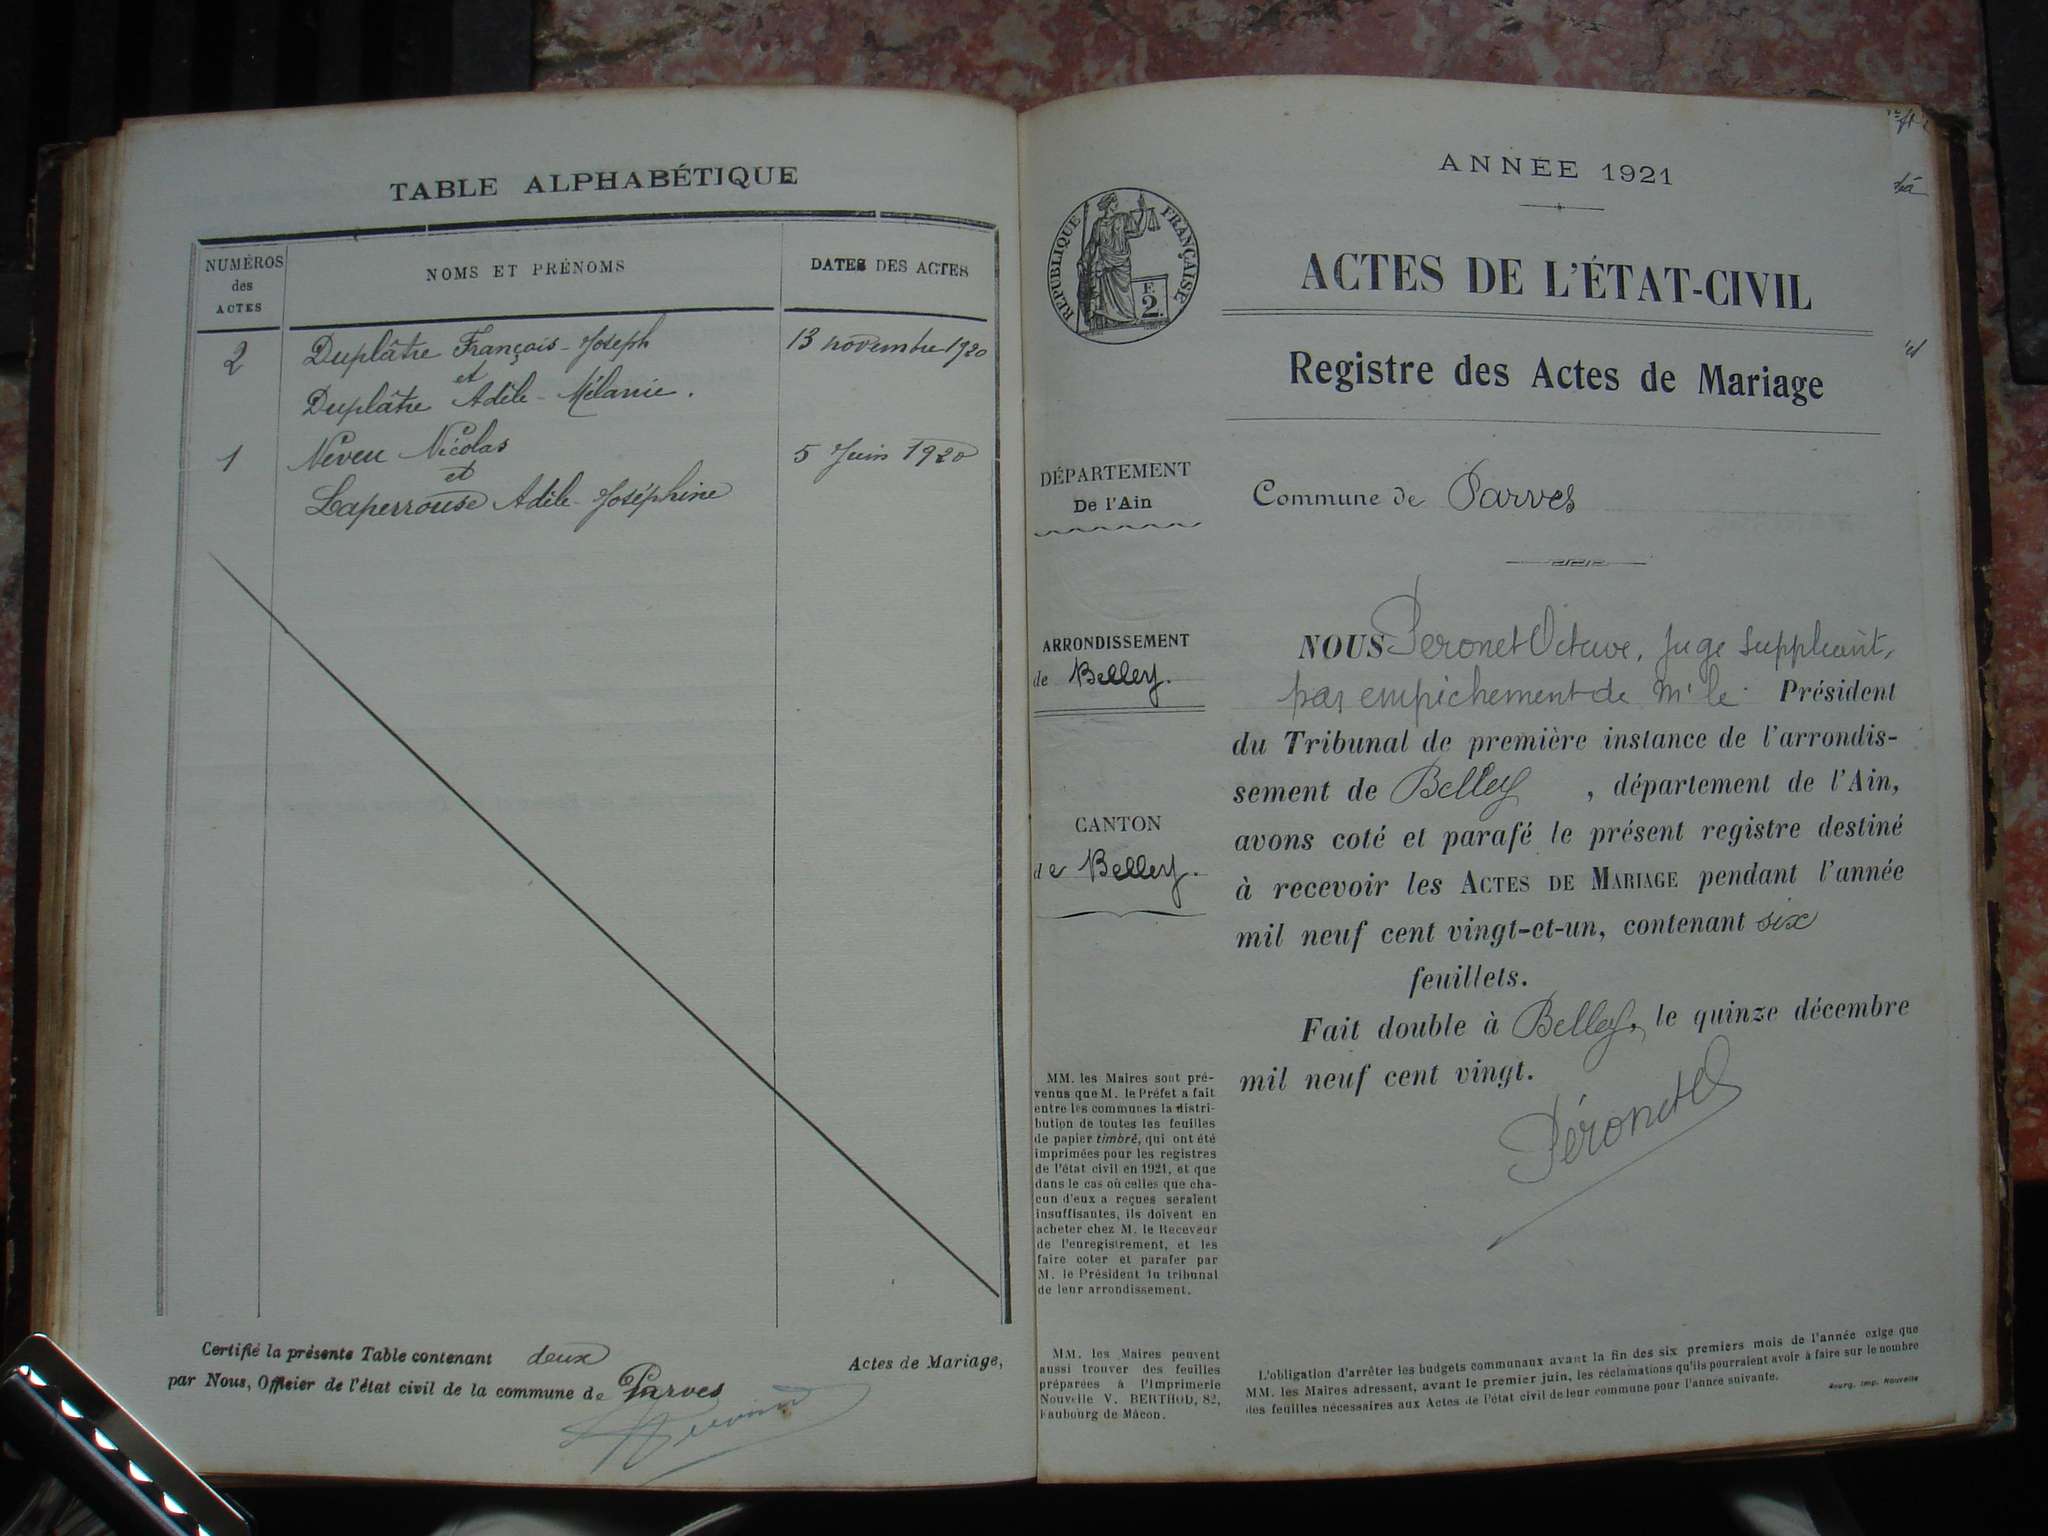 TABLE ALPHABÉTIQUE
NUMÉROS
des
ACTES
NOMS ET PRÉNOMS
DATES DES ACTES
2
Duplâtre François-Joseph
13 novembre 1920
et
Duplâtre Adèle-Mélanie.
1
Neveu Nicolas
5 Juin 1920
et
Laperrouse Adèle-Joséphine
Certifié la présente Table contenant deux Actes de Mariage,
par Nous, Officier de l'état civil de la commune de Parves
ANNÉE 1921
RÉPUBLIQUE FRANÇAISE
F.
2.
ACTES DE L'ÉTAT-CIVIL
Registre des Actes de Mariage
DÉPARTEMENT
De l'Ain
Commune de Parves
ARRONDISSEMENT
de Belley.
CANTON
de Belley.
NOUS Peronet Octave, Juge suppléant,
par empêchement de Mr le Président
du Tribunal de première instance de l'arrondis-
sement de Belley, département de l'Ain,
avons coté et parafé le présent registre destiné
à recevoir les ACTES DE MARIAGE pendant l'année
mil neuf cent vingt-et-un, contenant six
feuillets.
Fait double à Belley, le quinze décembre
mil neuf cent vingt.
Péronet
MM. les Maires sont pré-
venus que M. le Préfet a fait
entre les communes la distri-
bution de toutes les feuilles
de papier timbré, qui ont été
imprimées pour les registres
de l'état civil en 1921, et que
dans le cas où celles que cha-
cun d'eux a reçues seraient
insuffisantes, ils doivent en
acheter chez M. le Receveur
de l'enregistrement, et les
faire coter et parafer par
M. le Président du tribunal
de leur arrondissement.
MM. les Maires peuvent
aussi trouver des feuilles
préparées à l'Imprimerie
Nouvelle V. BERTHOD, 82,
Faubourg de Mâcon.
L'obligation d'arrêter les budgets communaux avant la fin des six premiers mois de l'année exige que
MM. les Maires adressent, avant le premier juin, les réclamations qu'ils pourraient avoir à faire sur le nombre
des feuilles nécessaires aux Actes de l'état civil de leur commune pour l'année suivante.
Bourg, Imp. Nouvelle